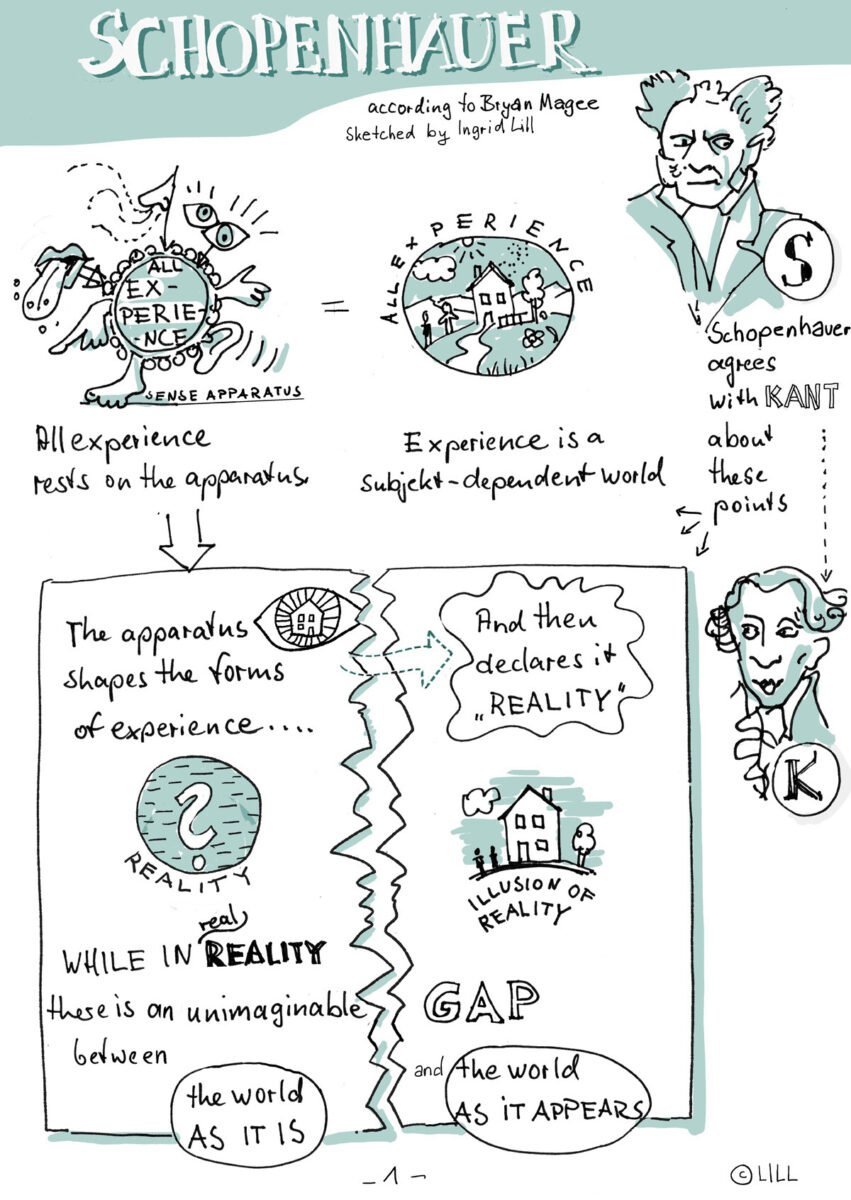 SCHOPENHAUER
according to Bryan Magee
Sketched by Ingrid Lill
ALL
EX-
PERIE-
-NCE
SENSE APPARATUS
ALL EXPERIENCE
=
S
All experience
rests on the apparatus.
Experience is a
subjekt-dependent world
Schopenhauer
agrees
with KANT
about
these
points
K
The apparatus
shapes the forms
of experience....
And then
declares it
„REALITY"
?
REALITY
ILLUSION OF
REALITY
real
WHILE IN REALITY
there is an unimaginable
GAP
between
the world
AS IT IS
and the world
AS iT APPEARS
- 1 -
© LILL